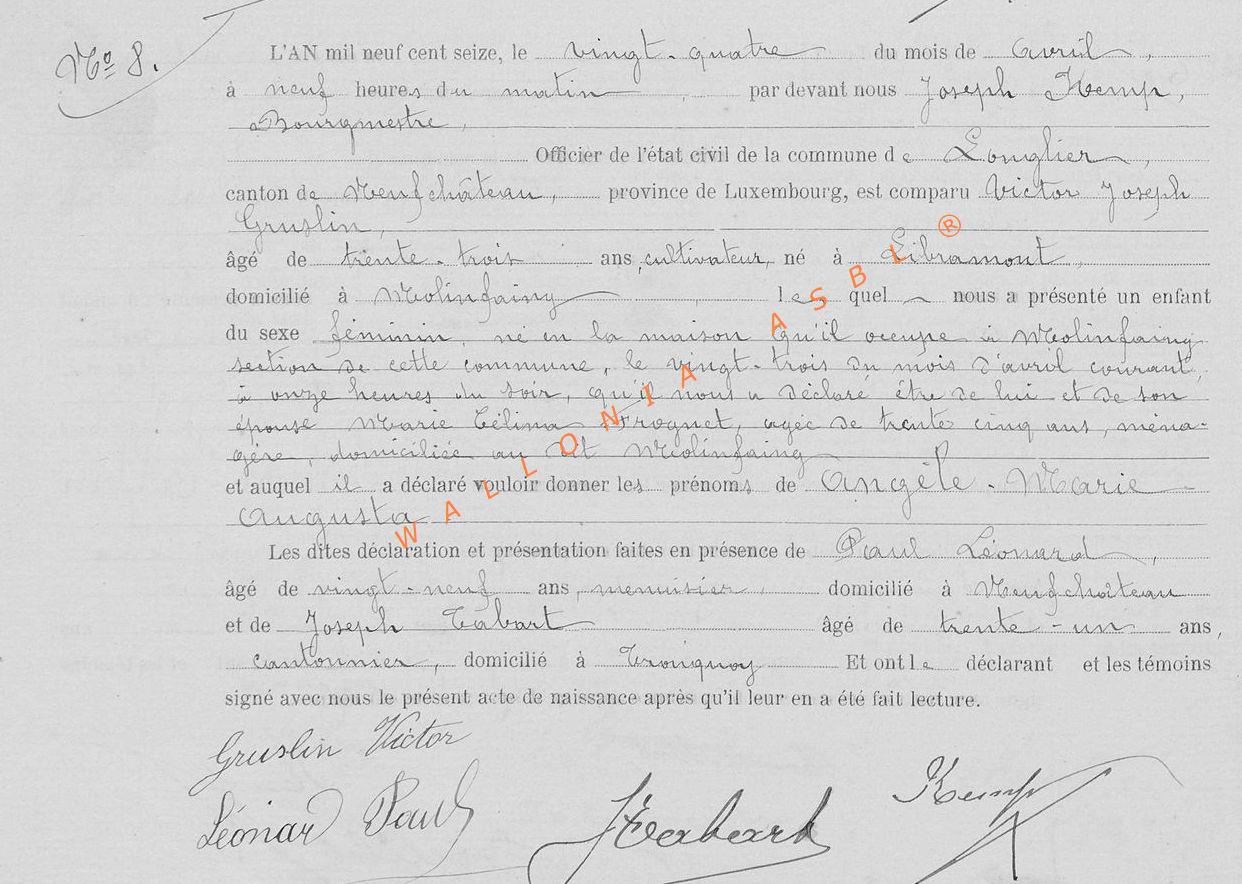 No 8.
L'AN mil neuf cent seize, le vingt-quatre du mois de avril,
à neuf heures du matin, par devant nous Joseph Kemp,
Bourgmestre,
Officier de l'état civil de la commune de Longlier,
canton de Neufchâteau, province de Luxembourg, est comparu Victor Joseph
Gruslin,
âgé de trente-trois ans, cultivateur, né à Libramont,
domicilié à Molinfaing, lequel nous a présenté un enfant
du sexe féminin, né en la maison qu'il occupe à Molinfaing
section de cette commune, le vingt-trois du mois d'avril courant,
à onze heures du soir, qu'il nous a déclaré être de lui et de son
épouse Marie Célina Frognet, agée de trente cinq ans, ména-
gère, domiciliée au dit Molinfaing
et auquel il a déclaré vouloir donner les prénoms de Angèle-Marie-
Augusta
Les dites déclaration et présentation faites en présence de Paul Léonard,
âgé de vingt-neuf ans, menuisier, domicilié à Neufchâteau
et de Joseph Tabart âgé de trente-un ans,
cantonnier, domicilié à Tronquoy Et ont le déclarant et les témoins
signé avec nous le présent acte de naissance après qu'il leur en a été fait lecture.
Gruslin Victor
Léonard Paul
J Tabart
Kemp
WALLONIA ASBL ®